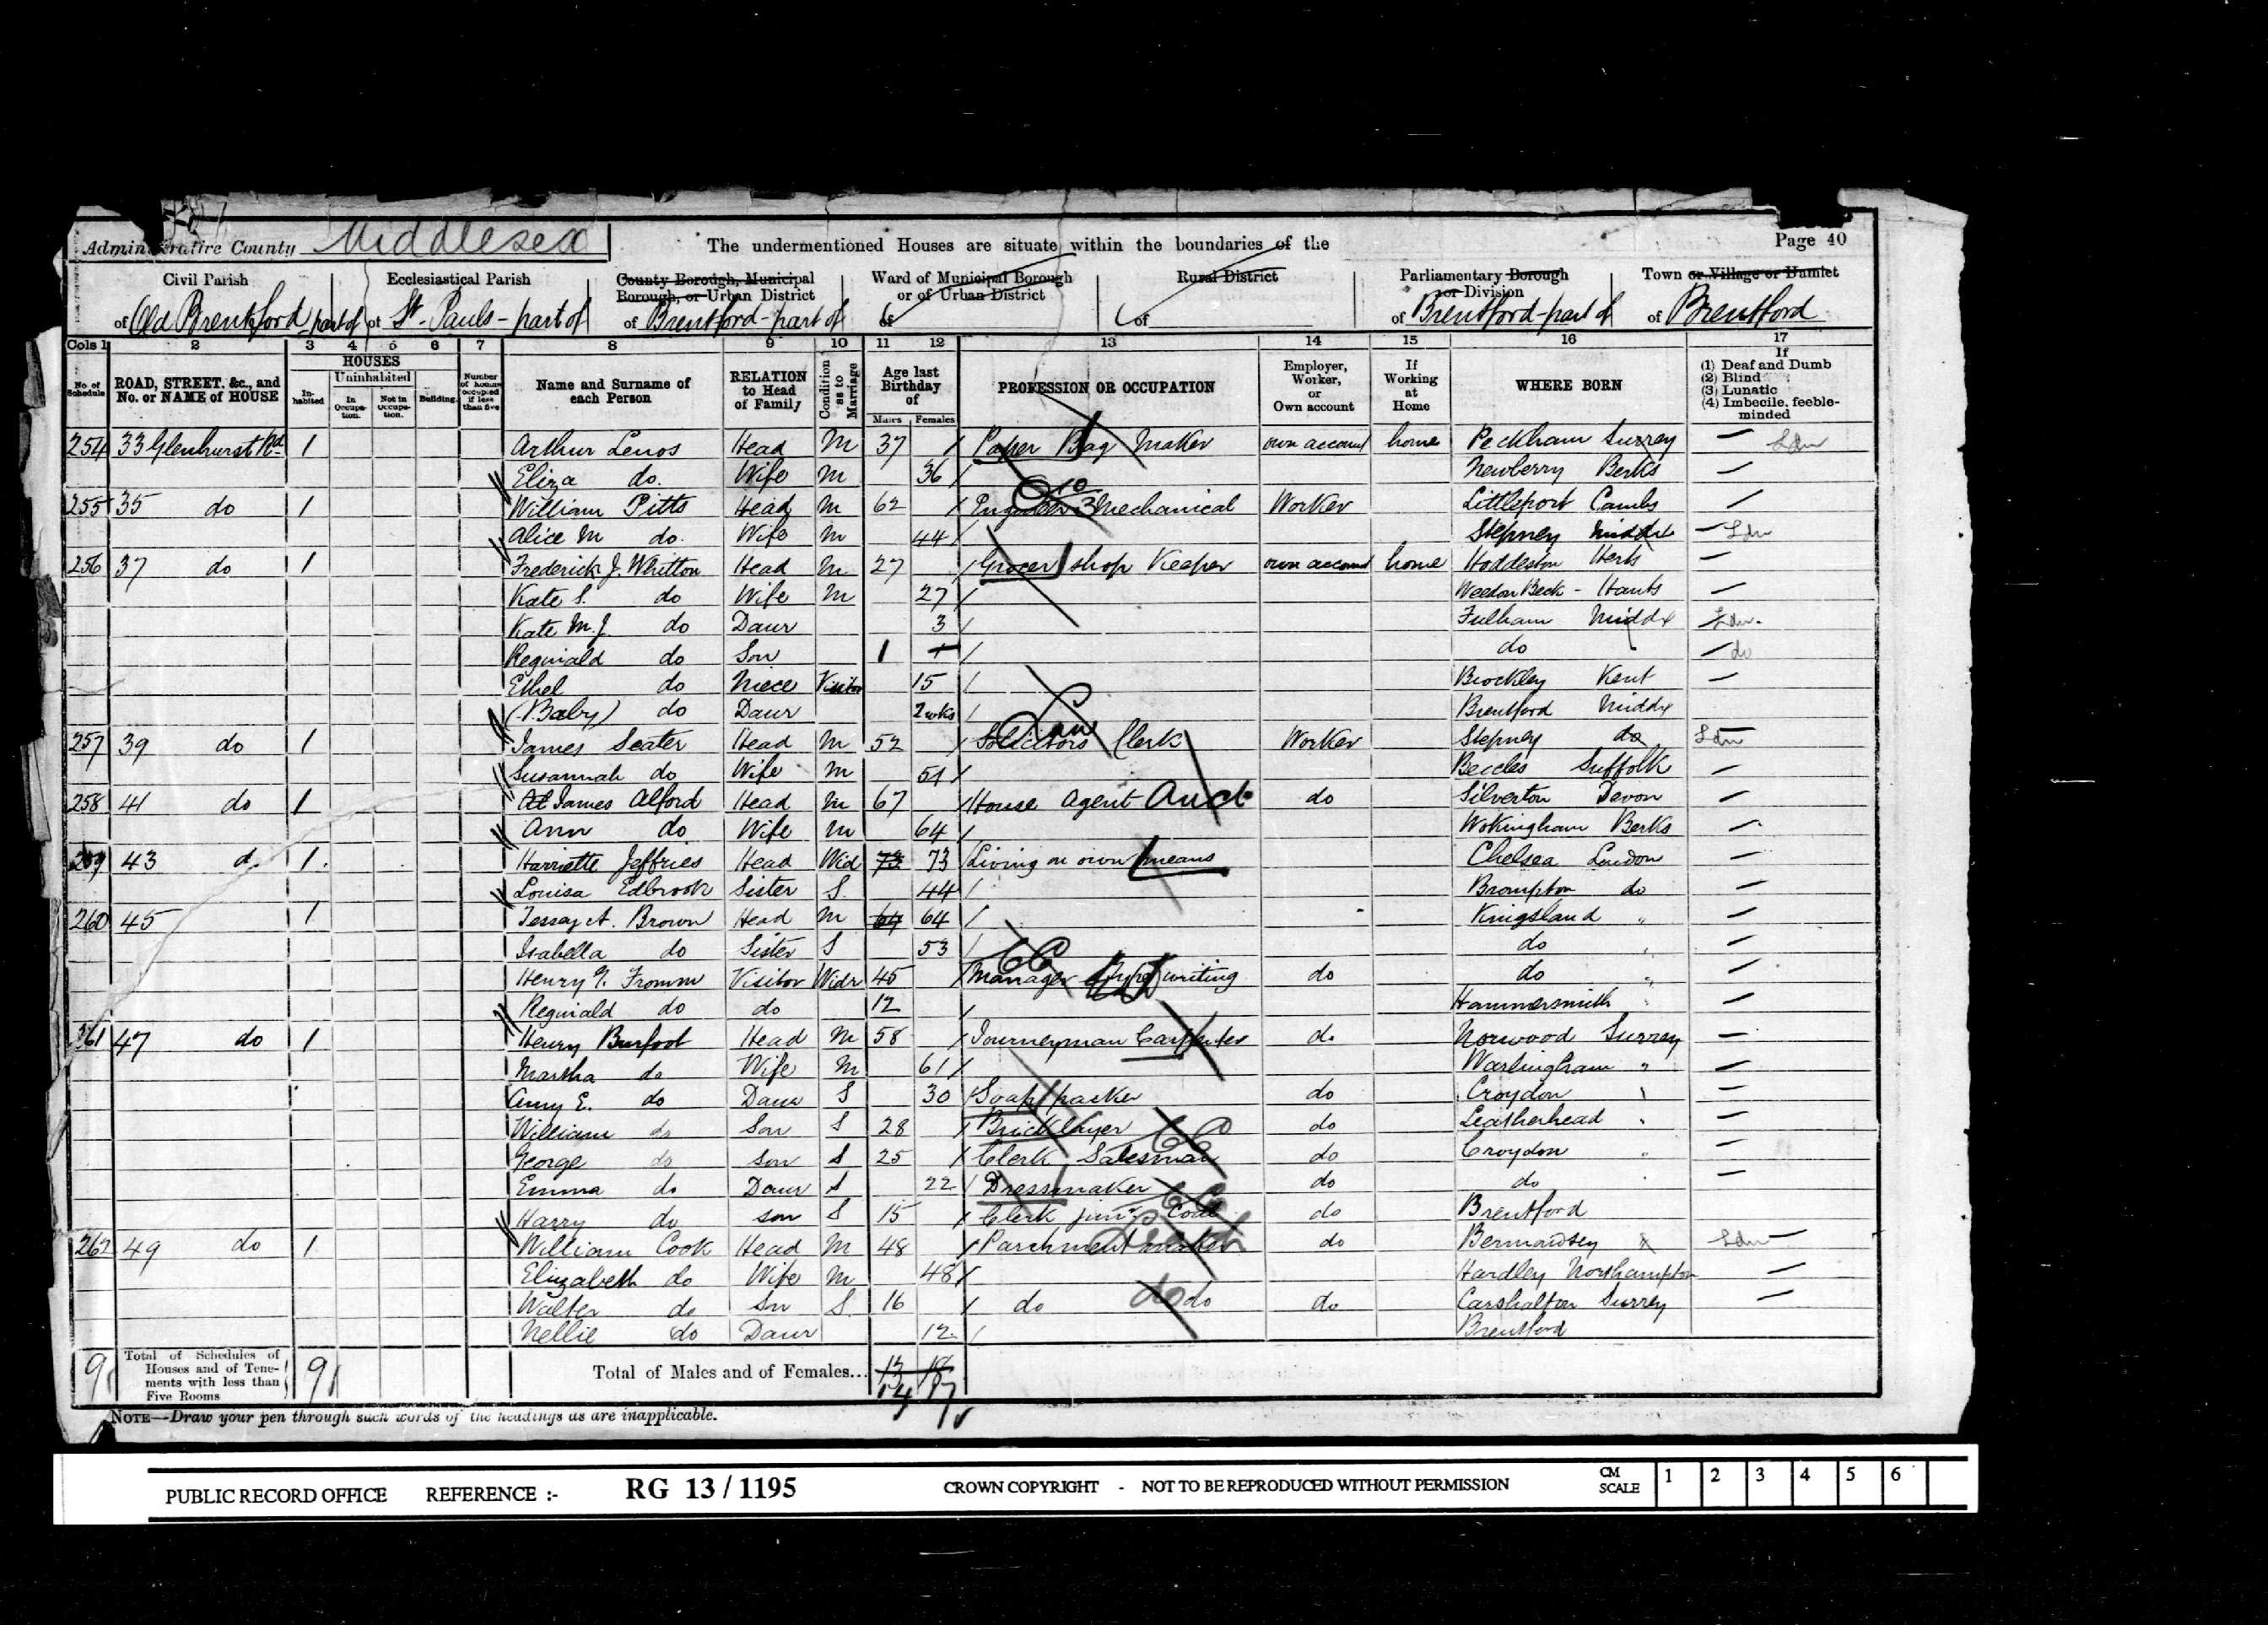 Administrative County Middlesex
The undermentioned Houses are situate within the boundaries of the
Page 40
Civil Parish of Old Brentford part of
Ecclesiastical Parish of St. Pauls - part of
County Borough, Municipal Borough, or Urban District of Brentford - part of
Ward of Municipal Borough or of Urban District of
Rural District of
Parliamentary Borough or Division of Brentford - part of
Town or Village or Hamlet of Brentford
Cols 1 2 3 4 5 6 7 8 9 10 11 12 13 14 15 16 17
No. of Schedule
ROAD, STREET, &c., and No. or NAME of HOUSE
HOUSES
In-habited
Uninhabited
In Occupa-tion.
Not in Occupa-tion.
Building.
Number of rooms occupied if less than five
Name and Surname of each Person
RELATION to Head of Family
Condition as to Marriage
Age last Birthday of
Males Females
PROFESSION OR OCCUPATION
Employer, Worker, or Own account
If Working at Home
WHERE BORN
If (1) Deaf and Dumb (2) Blind (3) Lunatic (4) Imbecile, feeble-minded
254 33 Glenhurst Rd 1 Arthur Lenos Head M 37 Paper Bag Maker own account home Peckham Surrey — Ldn
Eliza do. Wife M 36 Newberry Berks —
255 35 do 1 William Pitts Head M 62 Engineer Mechanical Worker Littleport Cambs —
Alice M do. Wife M 44 Stepney Middx — Ldn
256 37 do 1 Frederick J. Whitton Head M 27 Grocer shop Keeper own account home Hoddeston Herts —
Kate S. do Wife M 27 Weedon Beck - Hants —
Kate M. J. do Daur 3 Fulham Middx Ldn.
Reginald do Son 1 1 do — do
Ethel do Niece Visitor 15 Brockley Kent —
(Baby) do Daur 2 wks Brentford Middx
257 39 do 1 James Seater Head M 52 Solicitors Clerk Law Worker Stepney do Ldn
Susannah do Wife M 51 Beccles Suffolk —
258 41 do 1 James Alford Head M 67 House Agent Auct do Silverton Devon —
Ann do Wife M 64 Wokingham Berks —
259 43 do 1 Harriette Jeffries Head Wid 73 73 Living on own means Chelsea London —
Louisa Edbrook Sister S. 44 Brompton do —
260 45 1 Jessey A. Brown Head M 64 64 Kingsland " —
Isabella do Sister S 53 do " —
Henry G. Fromm Visitor Widr 45 Manager Typewriting do do " —
Reginald do do 12 Hammersmith " —
261 47 do 1 Henry Burfoot Head M 58 Journeyman Carpenter do Norwood Surrey —
Martha do Wife M 61 Warlingham " —
Amy E. do Daur S 30 Soap packer do Croydon " —
William do Son S 28 Bricklayer do Leatherhead " —
George do Son S 25 Clerk Salesman do Croydon " —
Emma do Daur S 22 Dressmaker do do —
Harry do Son S 15 Clerk junr Coal do Brentford
262 49 do 1 William Cook Head M 48 Parchment maker do Bermondsey Ldn —
Elizabeth do Wife M 48 Hardley Northampton —
Walter do Son S. 16 do do do Carshalton Surrey —
Nellie do Daur 12 Brentford
9 Total of Schedules of Houses and of Tene-ments with less than Five Rooms 9
Total of Males and of Females... 13 18
14 17
NOTE—Draw your pen through such words of the headings as are inapplicable.
PUBLIC RECORD OFFICE REFERENCE :- RG 13 / 1195 CROWN COPYRIGHT - NOT TO BE REPRODUCED WITHOUT PERMISSION CM SCALE 1 2 3 4 5 6